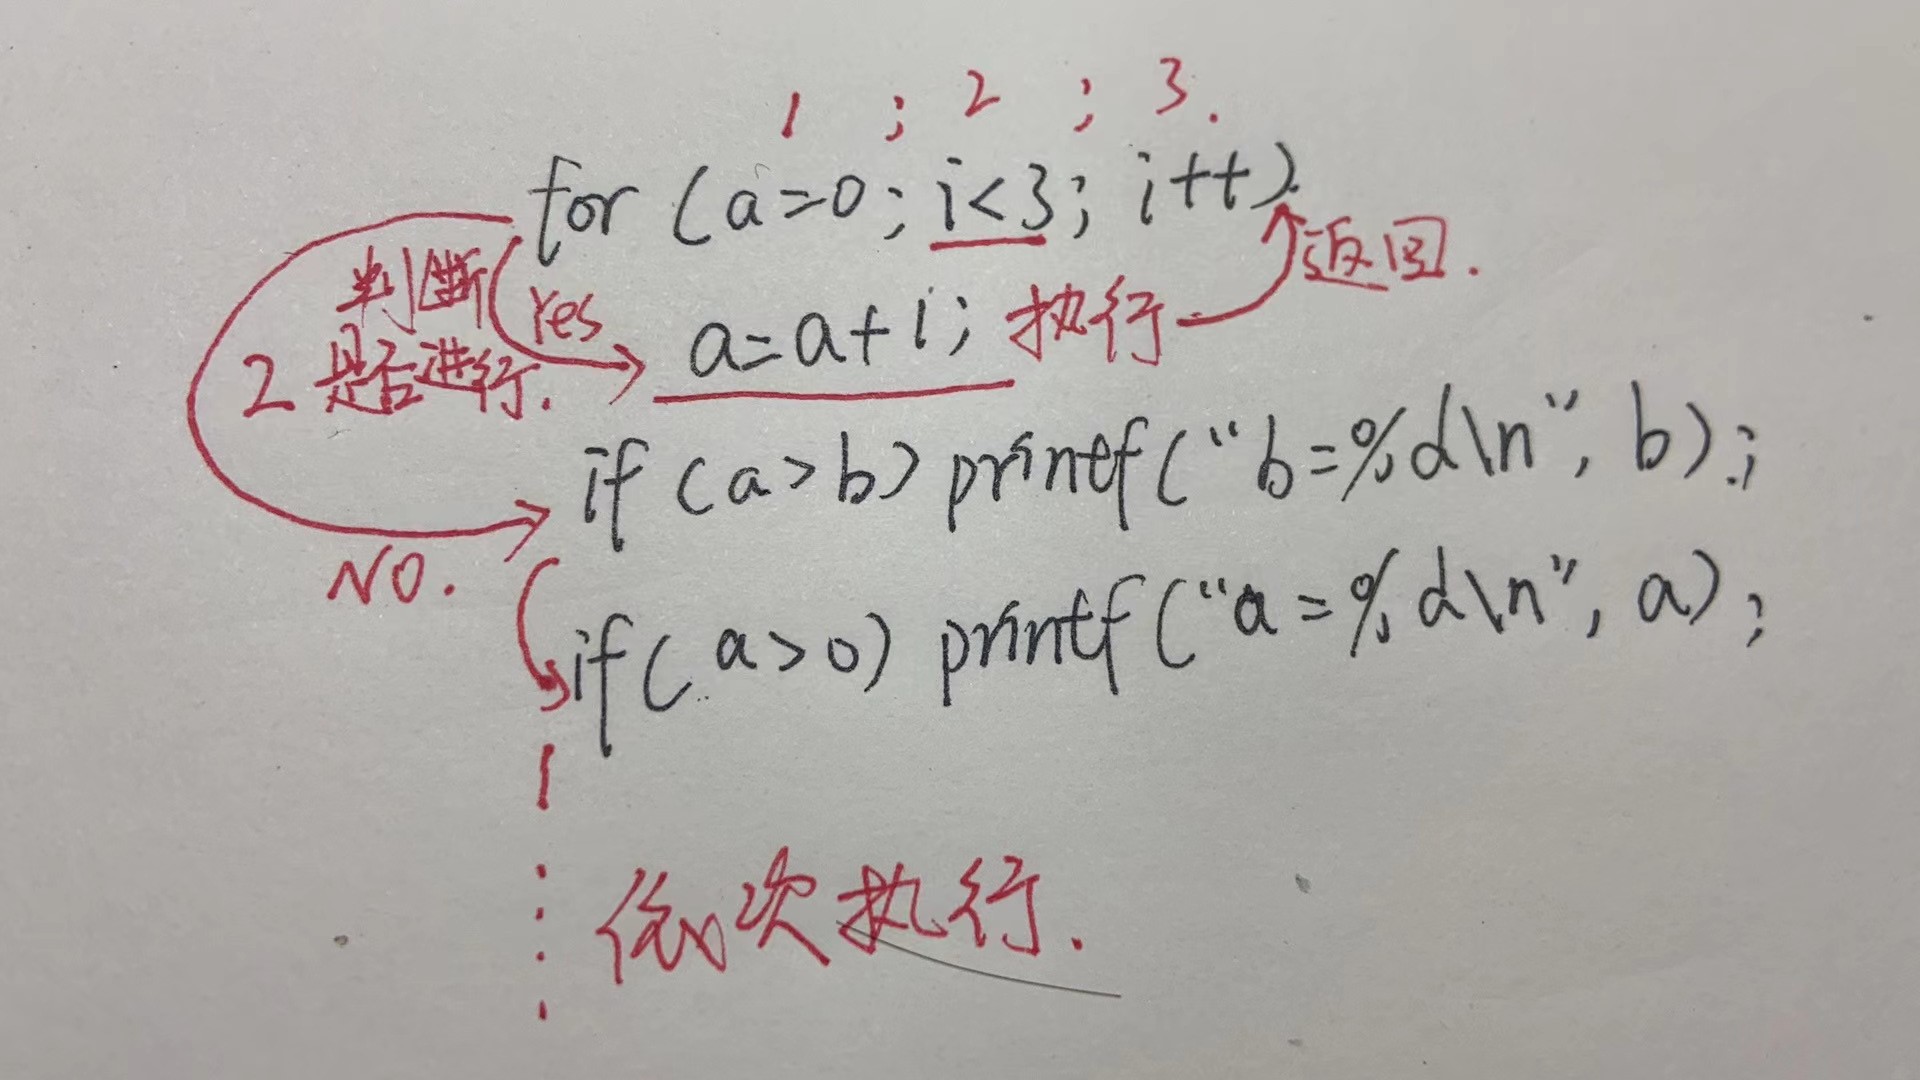 1 ; 2 ; 3.
for (a=0; i<3; i++)
返回.
判断 Yes a=a+i; 执行
2 是否进行.
if (a>b) printf("b=%d\n", b);
NO.
if (a>0) printf("a=%d\n", a);
依次执行.